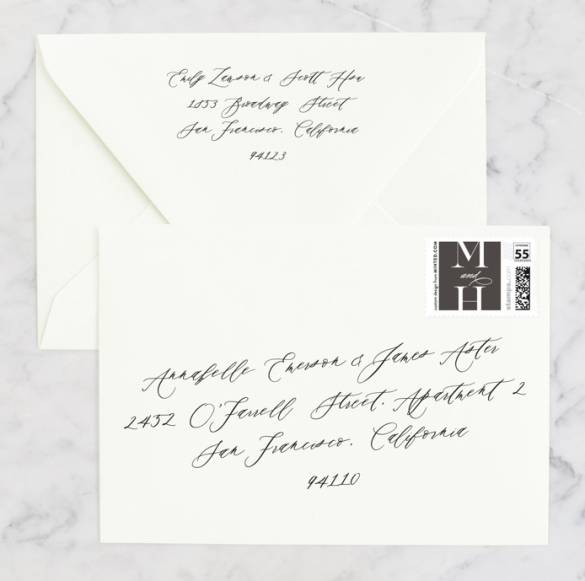 Emily Lawson & Scott Hou
1853 Broadway Street
San Francisco, California
94123
custom design from MINTED.COM
M
and
H
55
stamps.com
Annabelle Emerson & James Aster
2452 O'Farrell Street, Apartment 2
San Francisco, California
94110